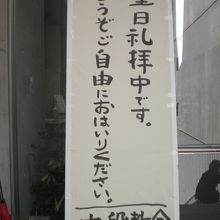 日礼拝中です。
うぞご自由におはいりください。
教会